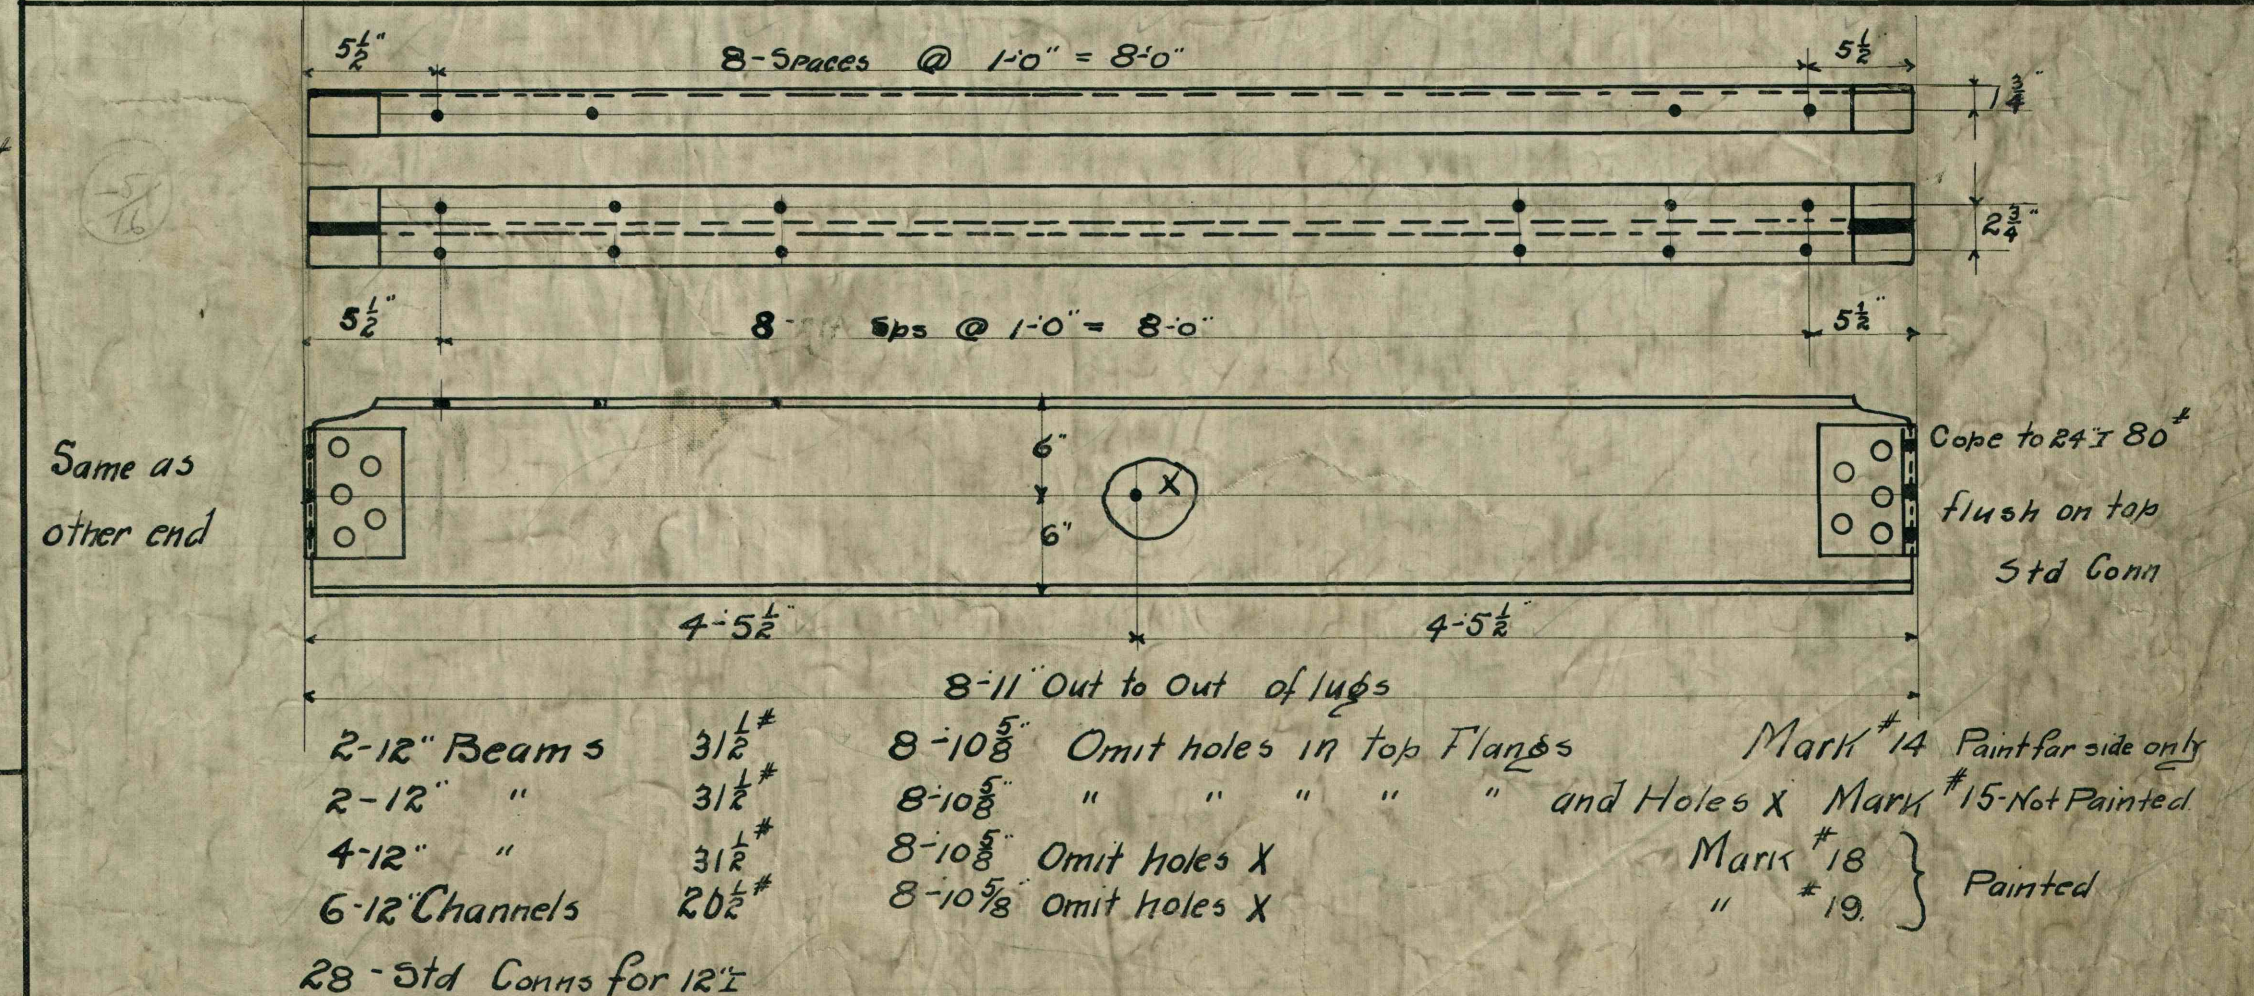 5½" 8-Spaces @ 1'-0" = 8'-0" 5½"
1¾"
-5/16
2¾"
5½" 8- sps @ 1'-0" = 8'-0" 5½"
Same as
other end
6"
6"
X
Cope to 24"I 80#
flush on top
Std Conn
4'-5½" 4'-5½"
8'-11" Out to Out of lugs
2-12" Beams 31½# 8'-10⅝" Omit holes in top Flangs Mark #14 Paint far side only
2-12" " 31½# 8'-10⅝" " " " " " and Holes X Mark #15-Not Painted.
4-12" " 31½# 8'-10⅝" Omit holes X Mark #18
6-12" Channels 20½# 8'-10⅝" Omit holes X " #19. } Painted
28-Std Conns for 12"I